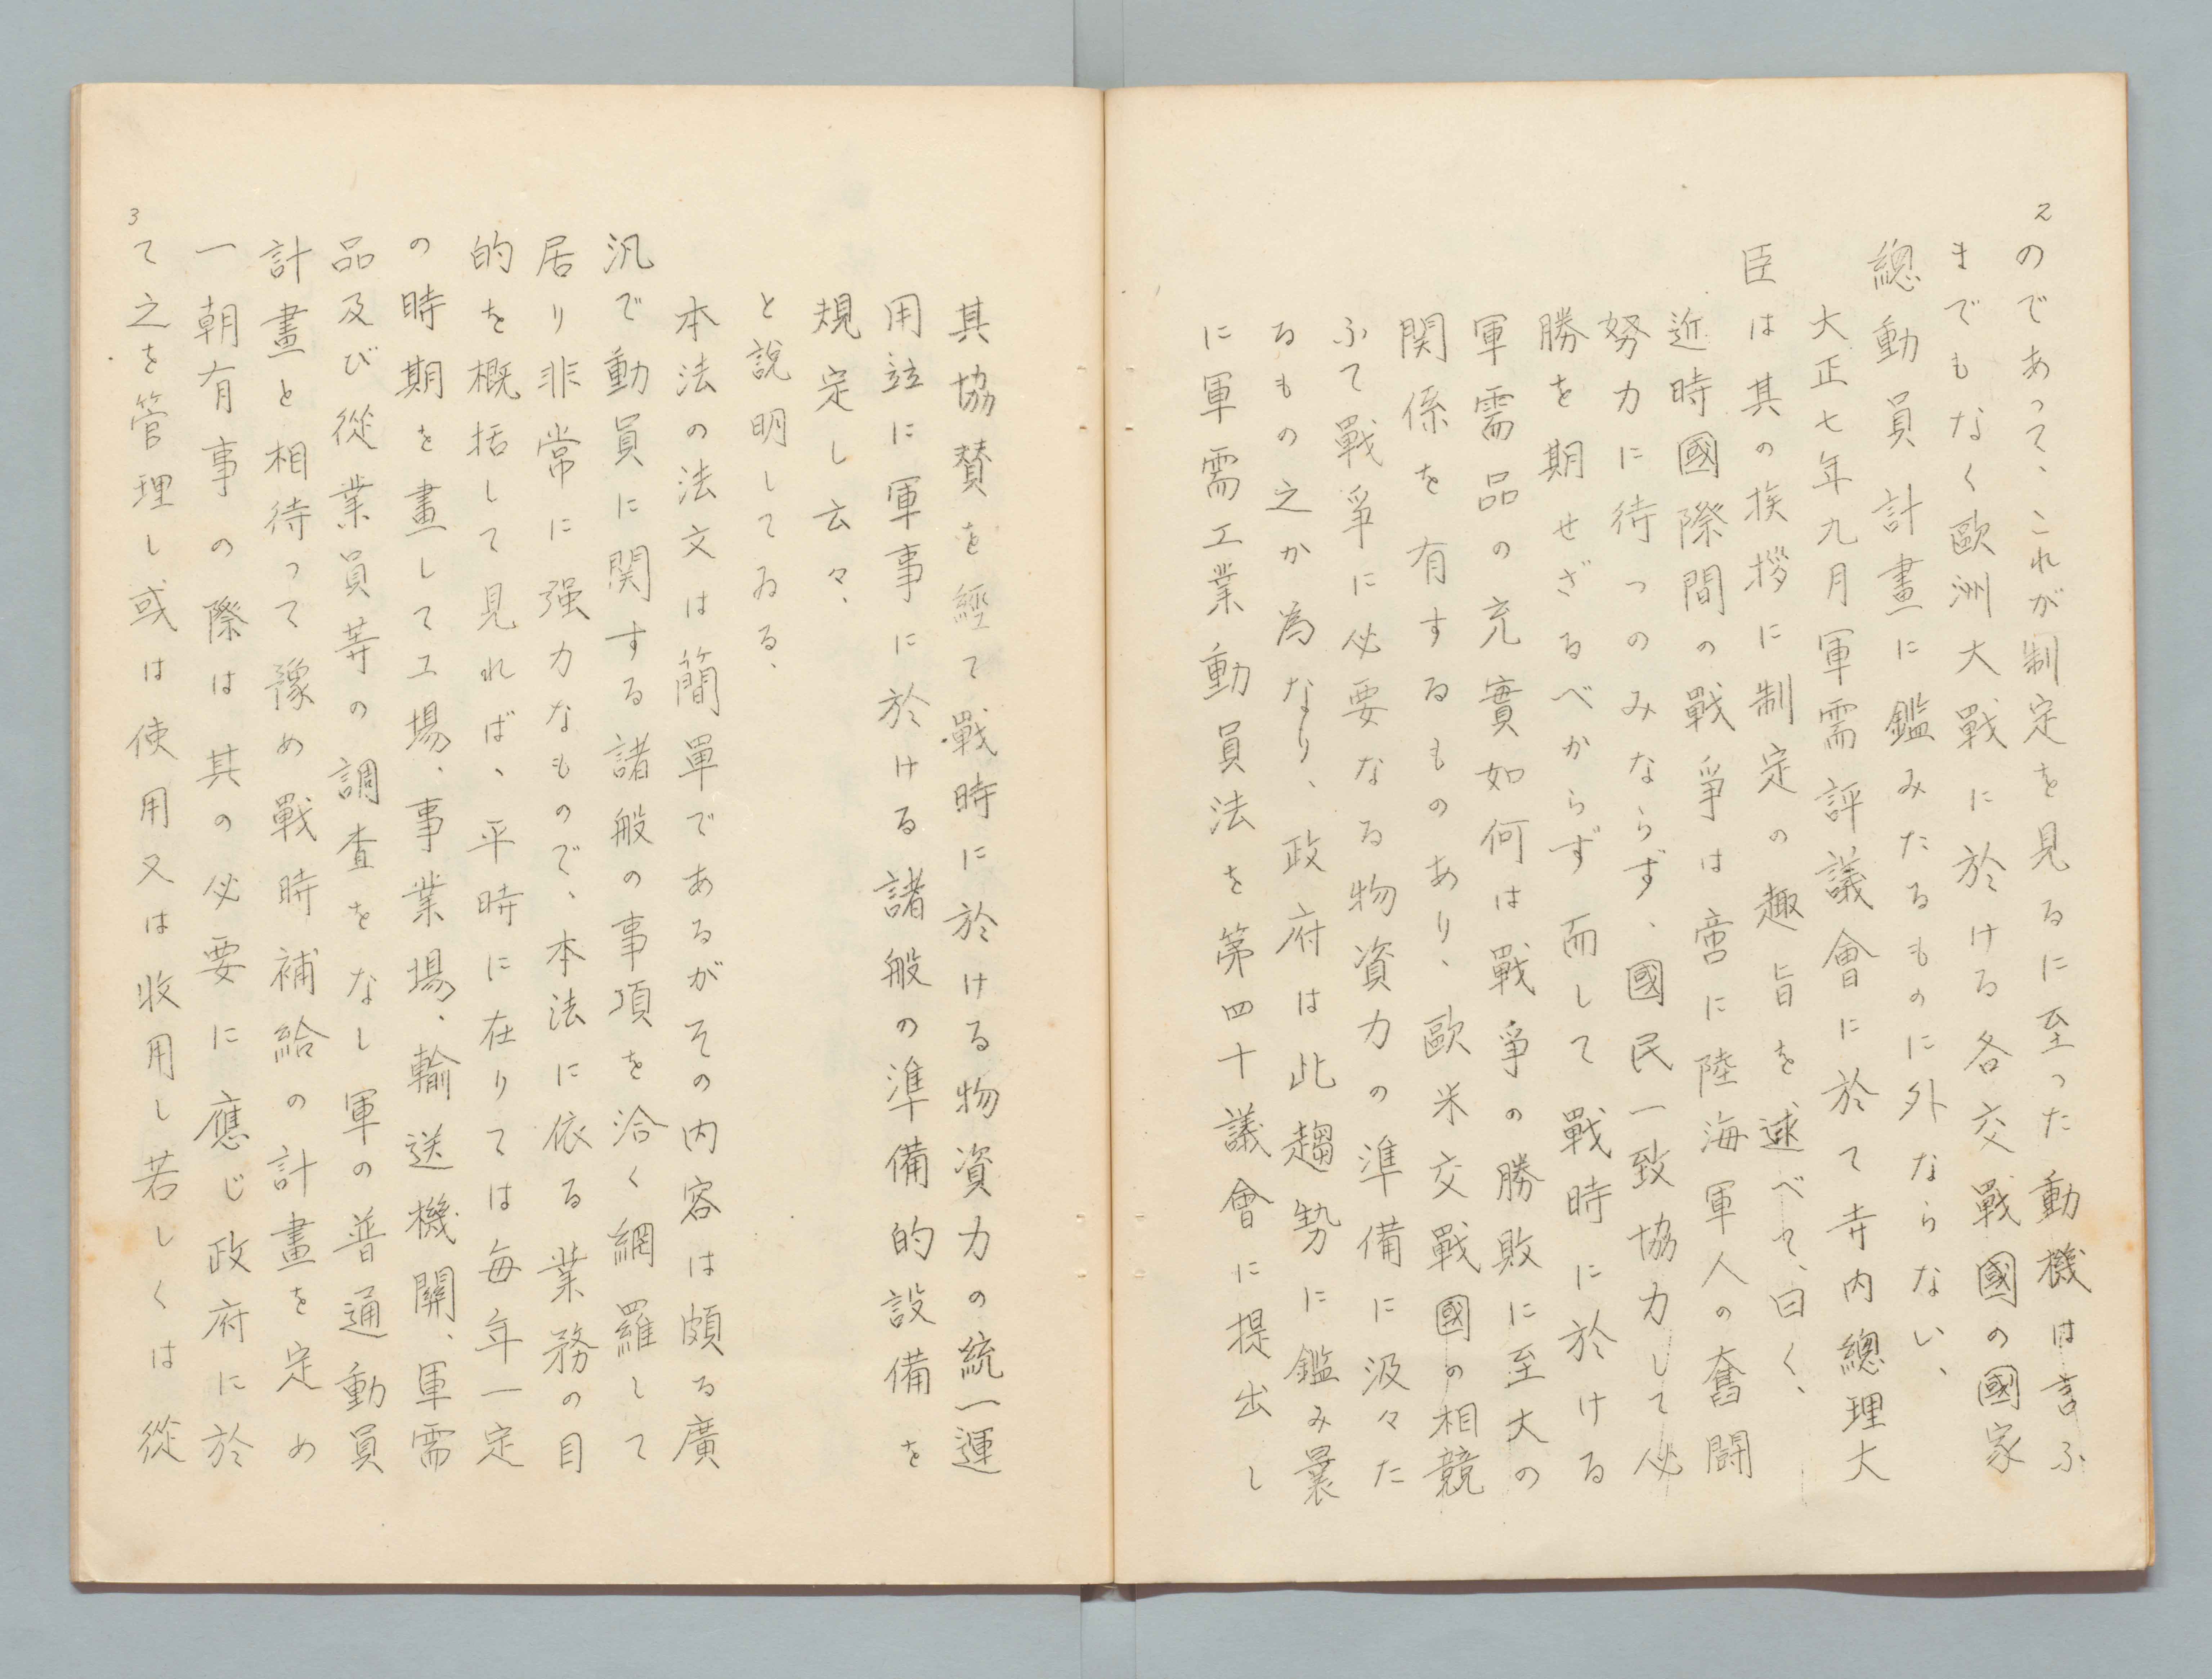 2
のであって、これが制定を見るに至った動機は言ふ
までもなく歐洲大戰に於ける各交戰國の國家
總動員計畫に鑑みたるものに外ならない、
大正七年九月軍需評議會に於て寺内總理大
臣は其の挨拶に制定の趣旨を述べて、曰く、
近時國際間の戰爭は啻に陸海軍人の奮闘
努力に待つのみならず、國民一致協力して必
勝を期せざるべからず而して戰時に於ける
軍需品の充實如何は戰爭の勝敗に至大の
関係を有するものあり、歐米交戰國の相競
ふて戰爭に必要なる物資力の準備に汲々た
るもの之か為なり、政府は此趨勢に鑑み曩
に軍需工業動員法を第四十議會に提出し
其協賛を經て戰時に於ける物資力の統一運
用竝に軍事に於ける諸般の準備的設備を
規定し云々、
と説明してゐる、
本法の法文は簡單であるがその内容は頗る廣
汎で動員に関する諸般の事項を洽く網羅して
居り非常に强力なもので、本法に依る業務の目
的を概括して見れば、平時に在りては毎年一定
の時期を畫して工場、事業場、輸送機關、軍需
品及び從業員等の調査をなし軍の普通動員
計畫と相待って豫め戰時補給の計畫を定め
一朝有事の際は其の必要に應じ政府に於
3
て之を管理し或は使用又は收用し若しくは從